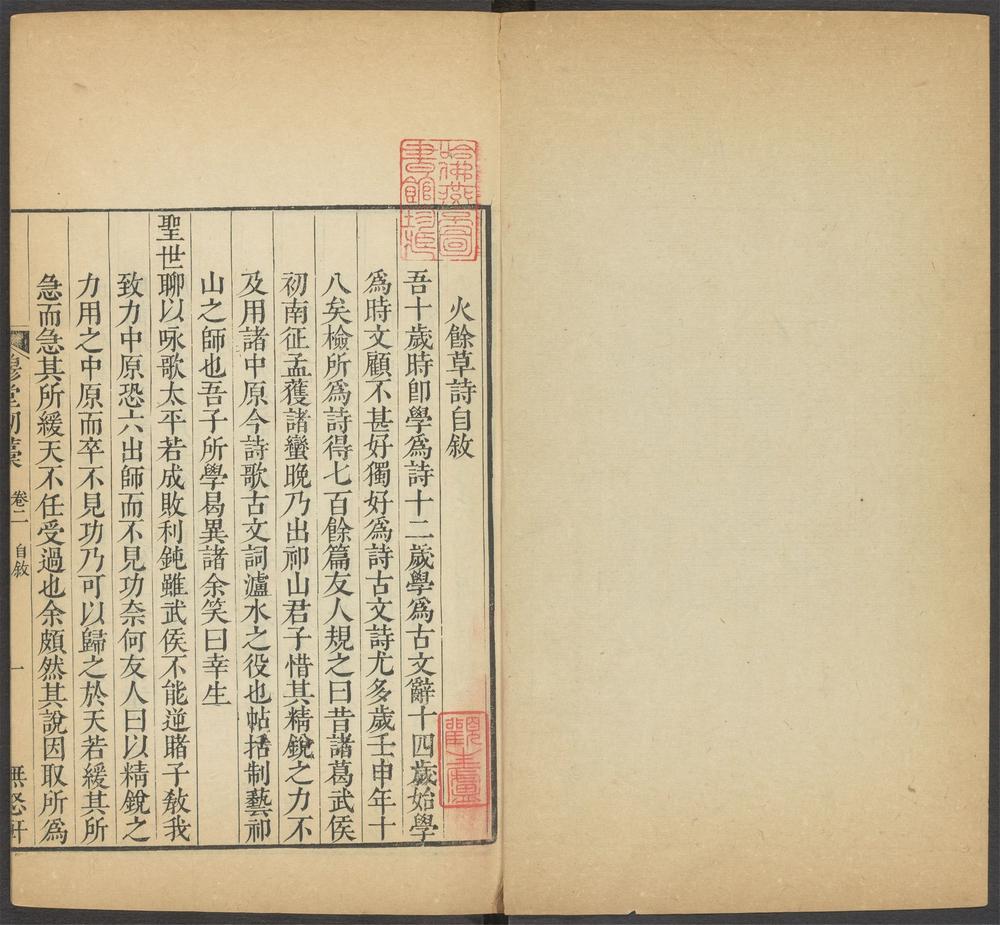 火餘草詩自敘
吾十歲時卽學爲詩十二歲學爲古文辭十四歲始學
爲時文顧不甚好獨好爲詩古文詩尤多歲壬申年十
八矣檢所爲詩得七百餘篇友人規之曰昔諸葛武侯
初南征孟獲諸蠻晚乃出祁山君子惜其精銳之力不
及用諸中原今詩歌古文詞瀘水之役也帖括制藝祁
山之師也吾子所學曷異諸余笑曰幸生
聖世聊以咏歌太平若成敗利鈍雖武侯不能逆睹子敎我
致力中原恐六出師而不見功奈何友人曰以精銳之
力用之中原而卒不見功乃可以歸之於天若緩其所
急而急其所緩天不任受過也余頗然其說因取所爲
穆堂初稾 卷二 自敘 一 無怒軒
哈佛燕京圖書館珍藏